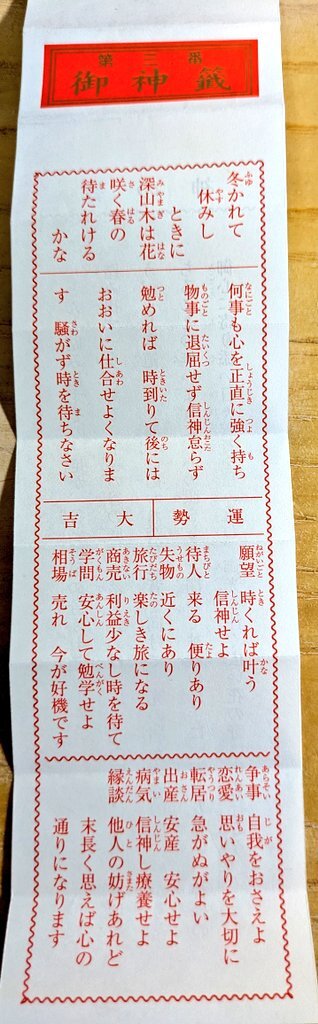 第三番
御神籤
冬かれて
休みし
ときに
深山木は花
咲く春の
待たれける
かな
何事も心を正直に強く持ち
物事に退屈せず信神怠らず
勉めれば　時到りて後には
おおいに仕合せよくなりま
す　騒がず時を待ちなさい
運勢
大吉
願望　時くれば叶う
信神せよ
待人　来る　便りあり
失物　近くにあり
旅行　楽しき旅になる
商売　利益少なし時を待て
学問　安心して勉学せよ
相場　売れ　今が好機です
争事　自我をおさえよ
恋愛　思いやりを大切に
転居　急がぬがよい
出産　安産　安心せよ
病気　信神し療養せよ
縁談　他人の妨げあれど
末長く思えば心の
通りになります